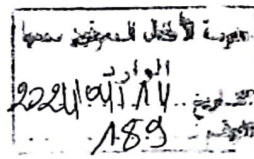 مدرسة الأطفال المعوقين سمعيا
الوارد
التاريخ
الرقم 189